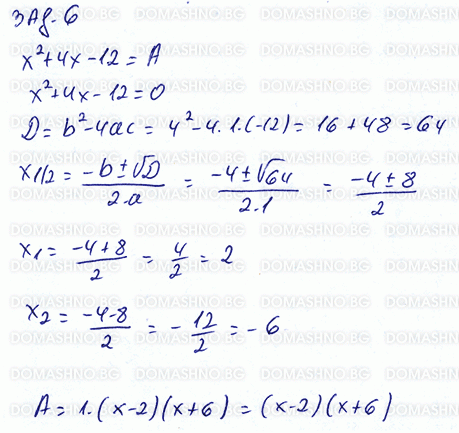 Зад. 6
x²+4x-12=A
x²+4x-12=0
D=b²-4ac=4²-4.1.(-12)=16+48=64
x1/2=(-b±√D)/(2.a)=(-4±√64)/(2.1)=(-4±8)/2
x₁=(-4+8)/2=4/2=2
x₂=(-4-8)/2=-12/2=-6
A=1.(x-2)(x+6)=(x-2)(x+6)
DOMASHNO.BG